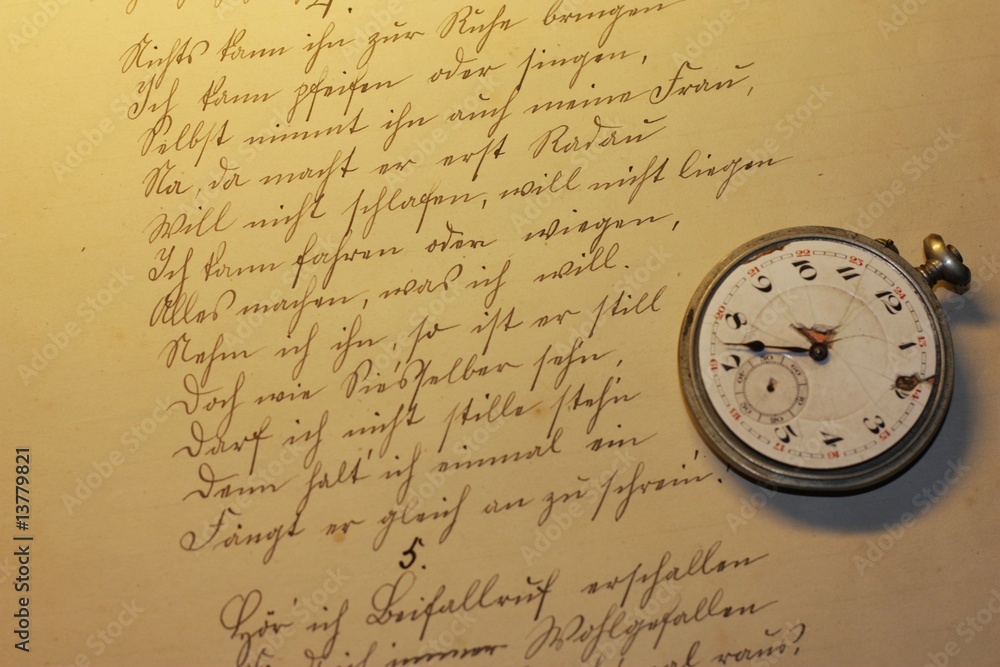 4.
Nichts kann ihn zur Ruhe bringen
Ich kann pfeifen oder singen,
Selbst nimmt ihn auch meine Frau,
Na, da macht er erst Radau
Will nicht schlafen, will nicht liegen
Ich kann fahren oder wiegen,
Alles machen, was ich will.
Nehm ich ihn, so ist er still
Doch wie Sie's selber seh'n,
Darf ich nicht stille steh'n
Denn halt' ich einmal ein
Fängt er gleich an zu schrein'!
5.
Hör' ich Beifallruf erschallen
ich immer Wohlgefallen
mal raus!
21 22 23 24 13 14 15 16 18 19
9 10 11 12 1 3 4 5 7 8
60
Adobe Stock | #13779821
Adobe Stock